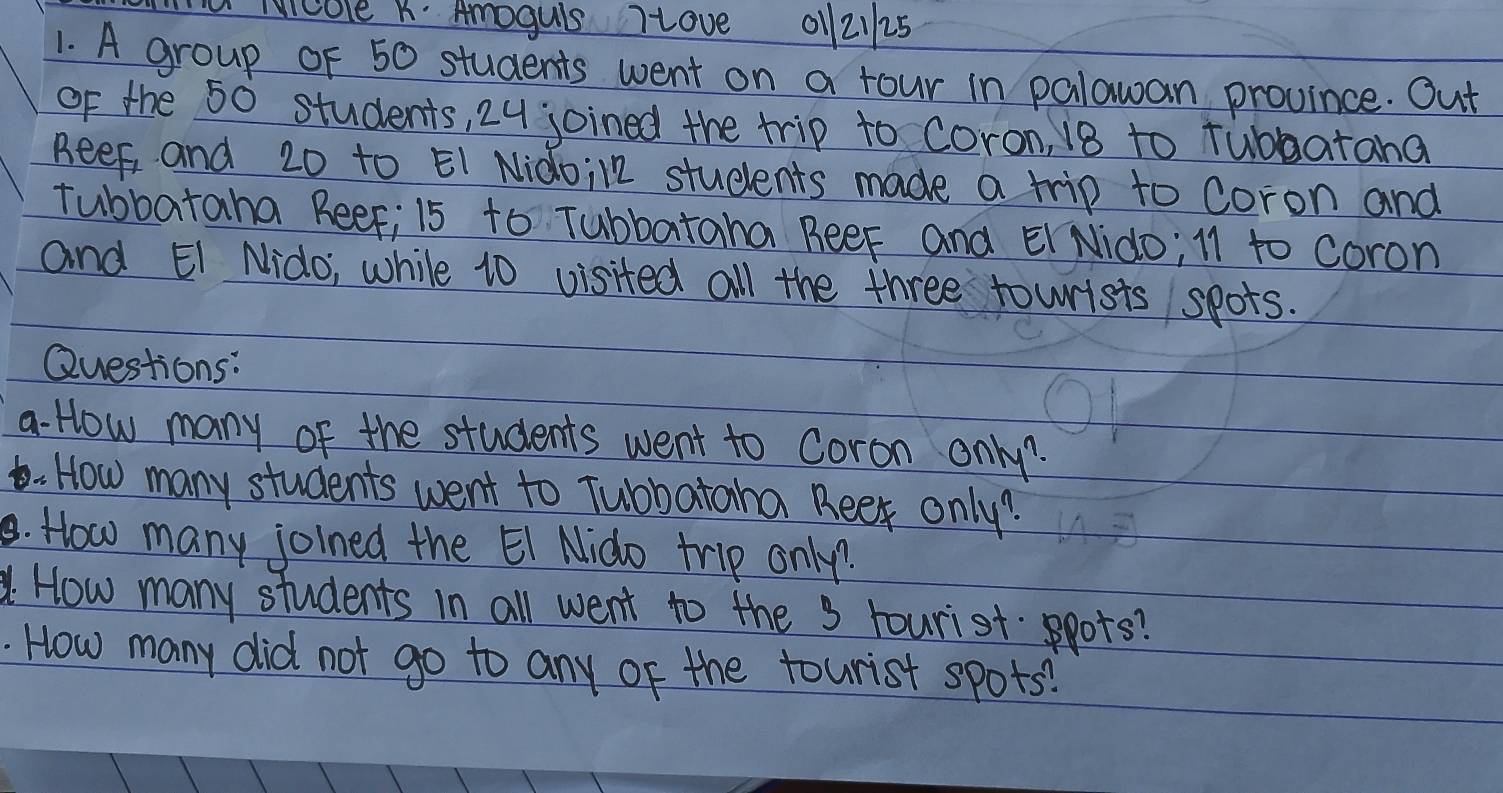 Nicole K. Amoguls 7-Love 01/21/25
1. A group of 50 students went on a tour in palawan province. Out
of the 50 students, 24 joined the trip to Coron, 18 to Tubbataha
Reef, and 20 to El Nido; 12 students made a trip to Coron and
Tubbataha Reef; 15 to Tubbataha Reef and El Nido; 11 to Coron
and El Nido; while 10 visited all the three tourists spots.
Questions:
a. How many of the students went to Coron only?
b. How many students went to Tubbataha Reef only?
c. How many joined the El Nido trip only?
d. How many students in all went to the 3 tourist spots?
. How many did not go to any of the tourist spots?